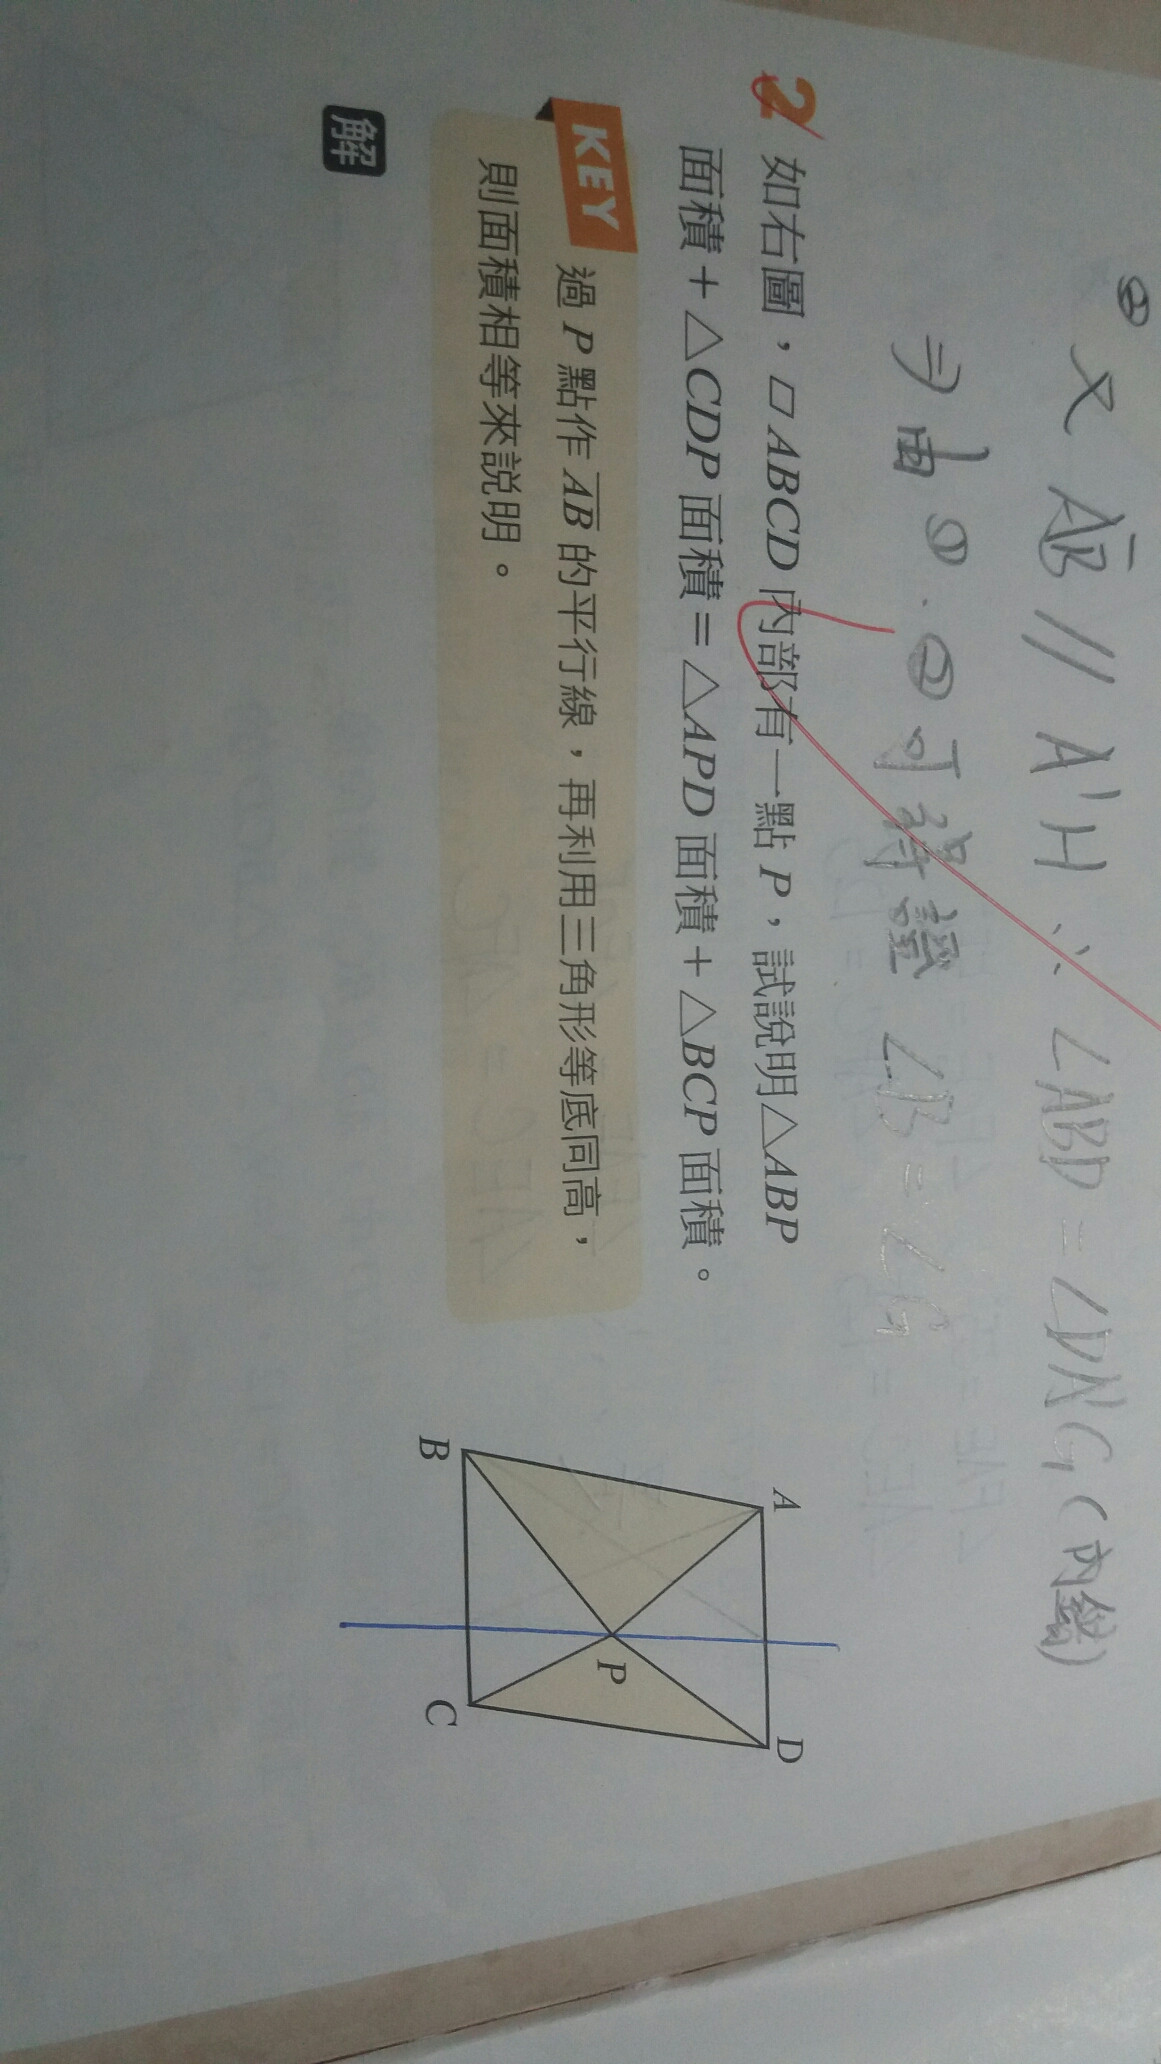 ② 又 AB // A'H ∴ ∠ABD = ∠DAG (內錯)
由 ①.② 可得證 ∠B = ∠G
2 如右圖，▱ABCD 內部有一點 P，試說明△ABP
面積+△CDP 面積=△APD 面積+△BCP 面積。
KEY 過 P 點作 AB 的平行線，再利用三角形等底同高，
則面積相等來說明。
解
A
D
P
B
C